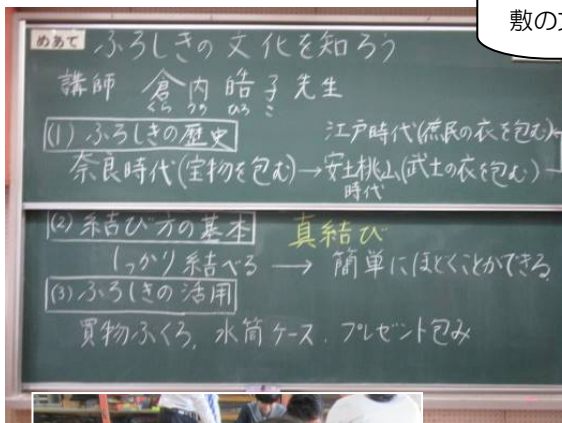 敷の文
めあて ふろしきの文化を知ろう
講師 倉内皓子先生
くらうちひろこ
(1) ふろしきの歴史
江戸時代(庶民の衣を包む)
奈良時代(宝物を包む)→安土桃山(武士の衣を包む)
時代
(2) 結び方の基本 真結び
しっかり結べる → 簡単にほどくことができる
(3) ふろしきの活用
買物ぶくろ、水筒ケース、プレゼント包み